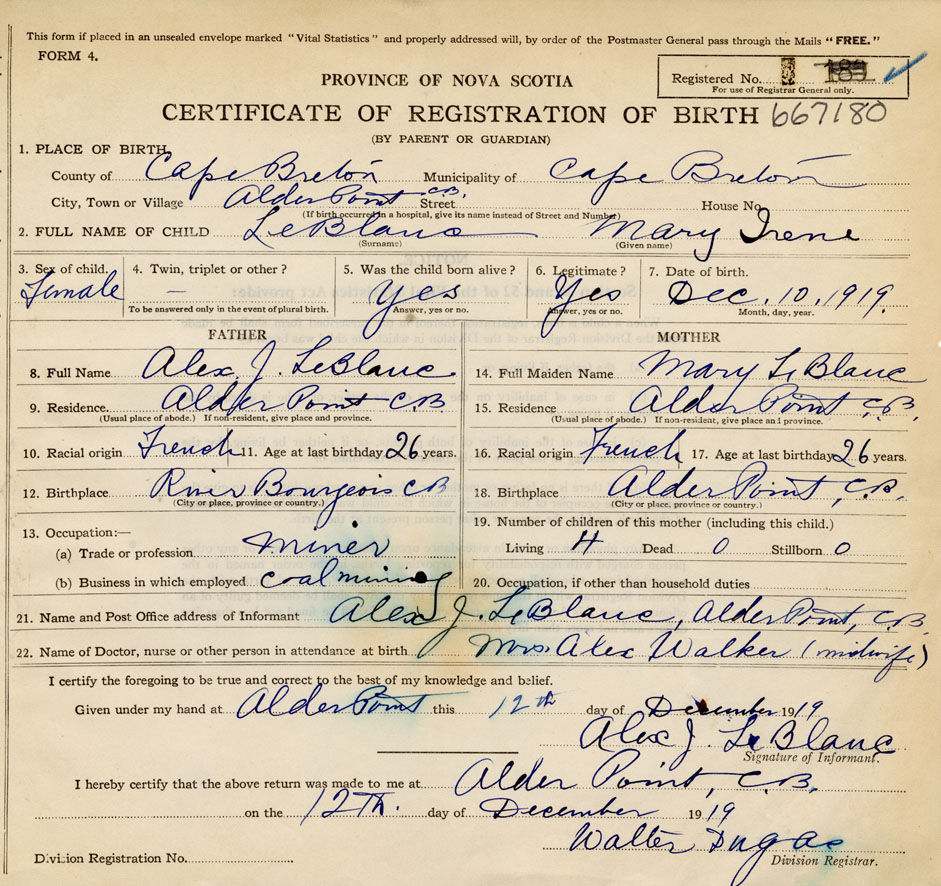 This form if placed in an unsealed envelope marked "Vital Statistics" and properly addressed will, by order of the Postmaster General pass through the Mails "FREE."
FORM 4.
Registered No.
For use of Registrar General only.
PROVINCE OF NOVA SCOTIA
CERTIFICATE OF REGISTRATION OF BIRTH 667180
(BY PARENT OR GUARDIAN)
1. PLACE OF BIRTH
County of Cape Breton Municipality of Cape Breton
City, Town or Village Alder Point C.B. Street House No.
(If birth occurred in a hospital, give its name instead of Street and Number)
2. FULL NAME OF CHILD LeBlanc Mary Irene
(Surname) (Given name)
3. Sex of child. 4. Twin, triplet or other? 5. Was the child born alive? 6. Legitimate? 7. Date of birth.
Female — Yes Yes Dec. 10, 1919.
To be answered only in the event of plural birth. Answer, yes or no. Answer, yes or no. Month, day, year.
FATHER MOTHER
8. Full Name Alex. J. LeBlanc 14. Full Maiden Name Mary LeBlanc
9. Residence Alder Point C.B. 15. Residence Alder Point, C.B.
(Usual place of abode.) If non-resident, give place and province. (Usual place of abode.) If non-resident, give place and province.
10. Racial origin French 11. Age at last birthday 26 years. 16. Racial origin French 17. Age at last birthday 26 years.
12. Birthplace River Bourgeois CB 18. Birthplace Alder Point, C.B.
(City or place, province or country.) (City or place, province or country.)
13. Occupation:— 19. Number of children of this mother (including this child.)
(a) Trade or profession miner Living 4 Dead 0 Stillborn 0
(b) Business in which employed coal mining 20. Occupation, if other than household duties
21. Name and Post Office address of Informant Alex J. LeBlanc, Alder Point, C.B.
22. Name of Doctor, nurse or other person in attendance at birth Mrs. Alex Walker (midwife)
I certify the foregoing to be true and correct to the best of my knowledge and belief.
Given under my hand at Alder Point this 12th day of December 1919
Alex J. LeBlanc
Signature of Informant.
I hereby certify that the above return was made to me at Alder Point, C.B.
on the 12th. day of December 1919
Walter Dugas
Division Registrar.
Division Registration No.